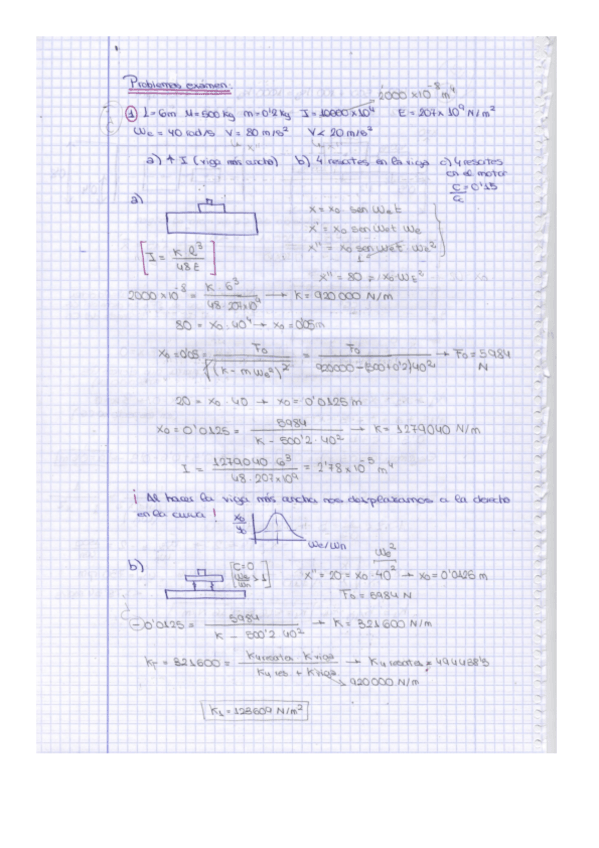 Problemas exámen:
2000 x10^-8 m^4
① L=6m M=500kg m=0'2kg I=10000x10^4 E=207x10^9 N/m^2
We = 40 rad/s V=80 m/s^2 V< 20 m/s^2
a) ↑ I (viga más ancha) b) 4 resortes en la viga c) 4 resortes
en el motor
C/Cc = 0'15
a)
x = x0 · sen Wet
x' = x0 sen Wet We
x'' = x0 sen Wet · We^2
[I = K l^3 / 48E]
x'' = 80 = x0·We^2
2000 x10^-8 = K·6^3 / 48·207x10^9 → K= 920000 N/m
80 = x0·40^2 → x0= 0'05m
x0=0'05 = F0 / √(K-mWe^2)^2 = F0 / 920000-500+0'2)40^2 → F0= 5984
N
20 = x0·40 → x0= 0'0125 m
x0= 0'0125 = 5984 / K-500'2·40^2 → K= 1279040 N/m
I = 1279040·6^3 / 48·207x10^9 = 2'78x10^-5 m^4
¡ Al hacer la viga más ancha nos desplazamos a la derecha
en la curva !
x0/y0
We/Wn
b)
[C=0
We/Wn > 1]
We^2
x'' = 20 = x0·40^2 → x0= 0'0125 m
F0 = 5984 N
-0'0125 = 5984 / K - 500'2·40^2 → K= 321600 N/m
KT = 321600 = K4resorte Kviga / K4res + Kviga → K4resorte = 494438'5
920000 N/m
K1 = 123609 N/m^2